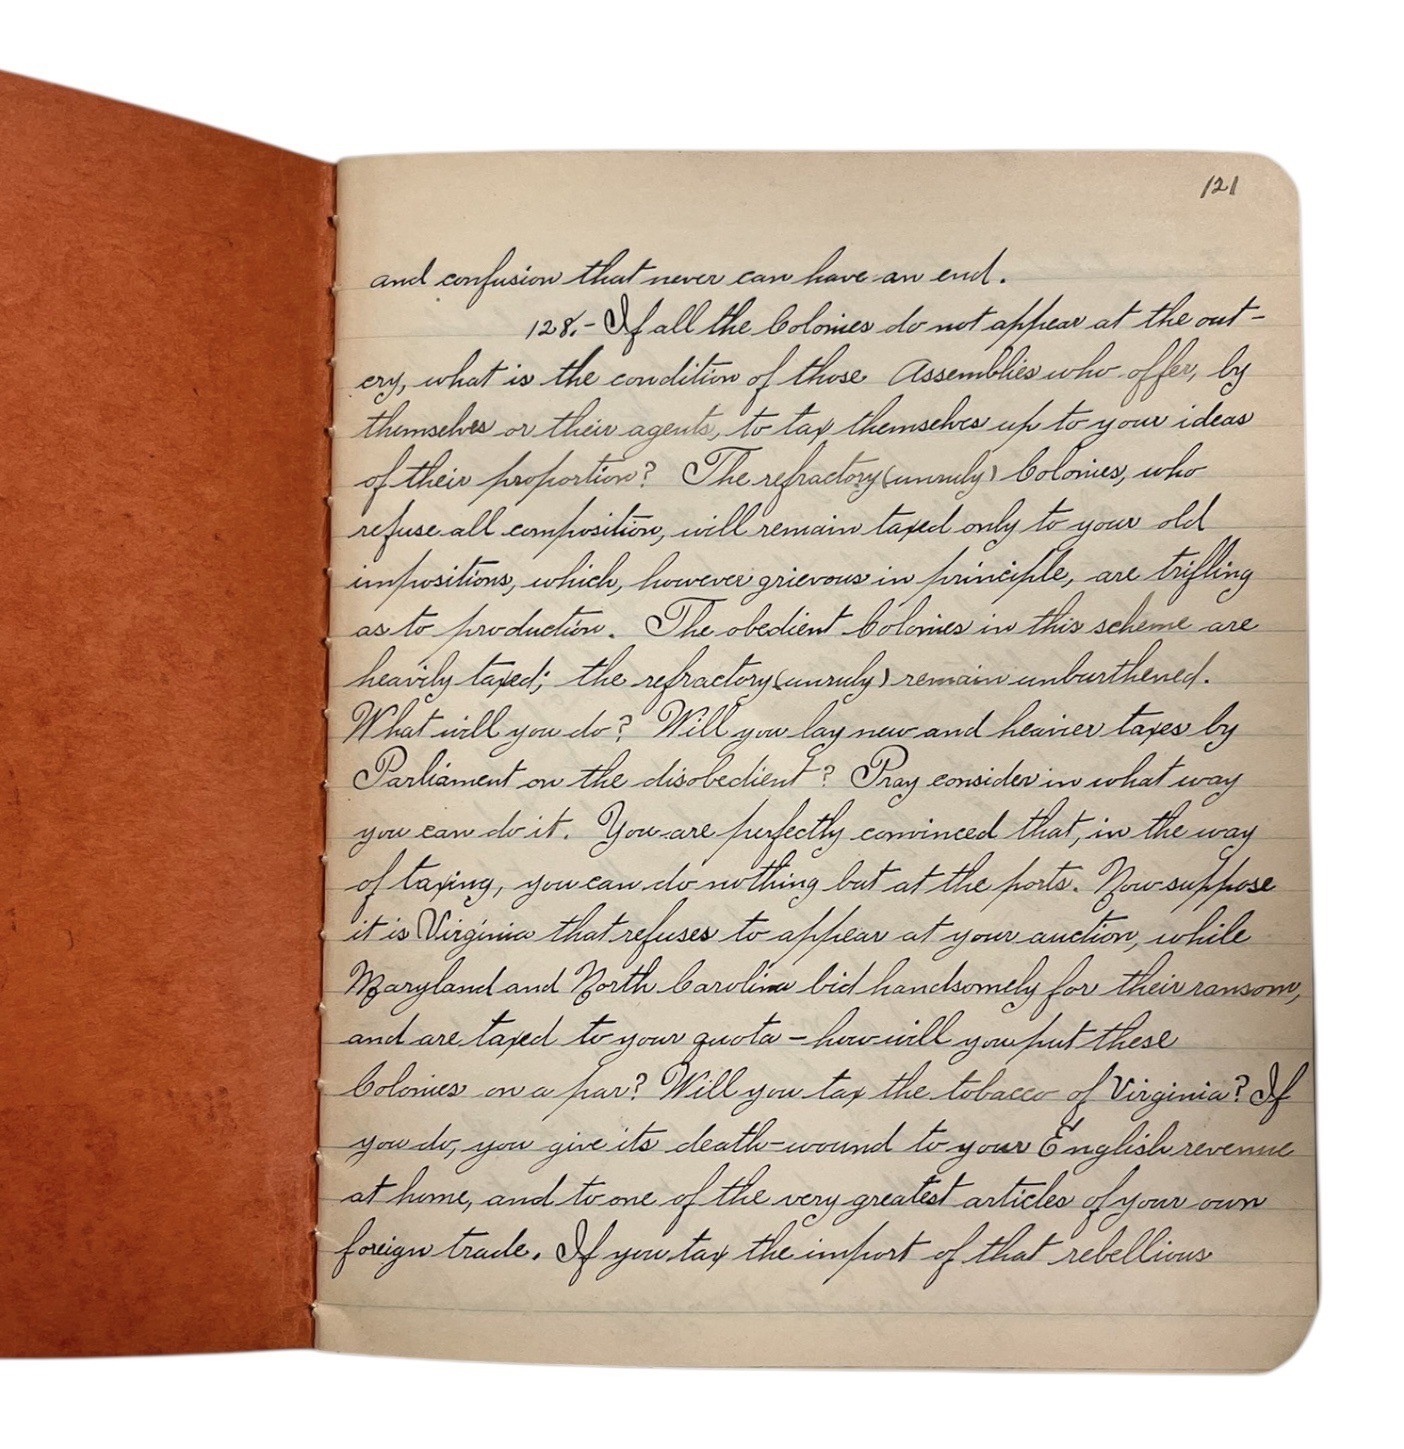 121
and confusion that never can have an end.
128.- If all the Colonies do not appear at the out-
cry, what is the condition of those Assemblies who offer, by
themselves or their agents, to tax themselves up to your ideas
of their proportion? The refractory (unruly) Colonies, who
refuse all composition, will remain taxed only to your old
impositions, which, however grievous in principle, are trifling
as to production. The obedient Colonies in this scheme are
heavily taxed; the refractory (unruly) remain unburthened.
What will you do? Will you lay new and heavier taxes by
Parliament on the disobedient? Pray consider in what way
you can do it. You are perfectly convinced that, in the way
of taxing, you can do nothing but at the ports. Now suppose
it is Virginia that refuses to appear at your auction, while
Maryland and North Carolina bid handsomely for their ransom,
and are taxed to your quota - how will you put these
Colonies on a par? Will you tax the tobacco of Virginia? If
you do, you give its death-wound to your English revenue
at home, and to one of the very greatest articles of your own
foreign trade. If you tax the import of that rebellious